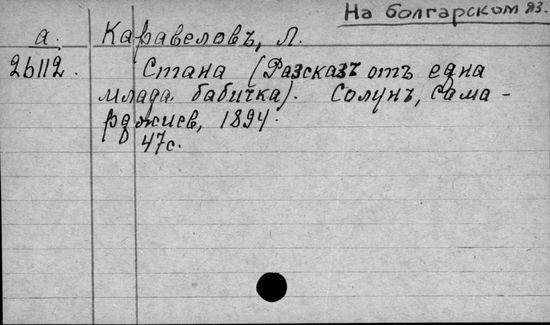 На болгарском яз.
а. Каравеловъ, Л.
26112. Стана (Разсказъ отъ една
млада бабичка). Солунъ, Сама-
рджиев, 1894.
47с.